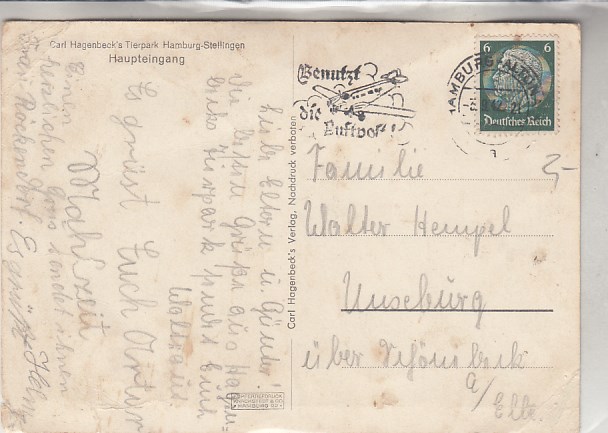 Carl Hagenbeck's Tierpark Hamburg-Stellingen
Haupteingang
Liebe Eltern u. Günter!
Die besten Grüße aus Hagen-
becks Tierpark sendet Euch
Waltraud
Es grüst Euch Artur
Mahlzeit
Einen
herzlichen Gruß sendet ihnen
Frau Röckendorf. Es grüßt Helmut
Carl Hagenbeck's Verlag, Nachdruck verboten
Benutzt
die
Luftpost!
HAMBURG-ALTONA
6 6
Deutsches Reich
Familie
Walter Hempel
Unseburg
über Schönebeck
a/Elbe.